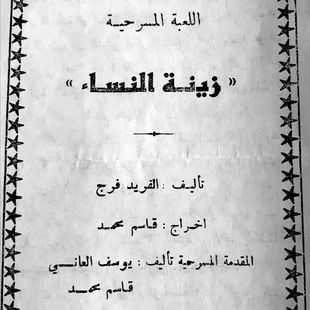 اللعبة المسرحية
« زينة النساء »
تأليف : الفريد فرج
اخراج : قاسم محمد
المقدمة المسرحية تأليف : يوسف العاني
قاسم محمد